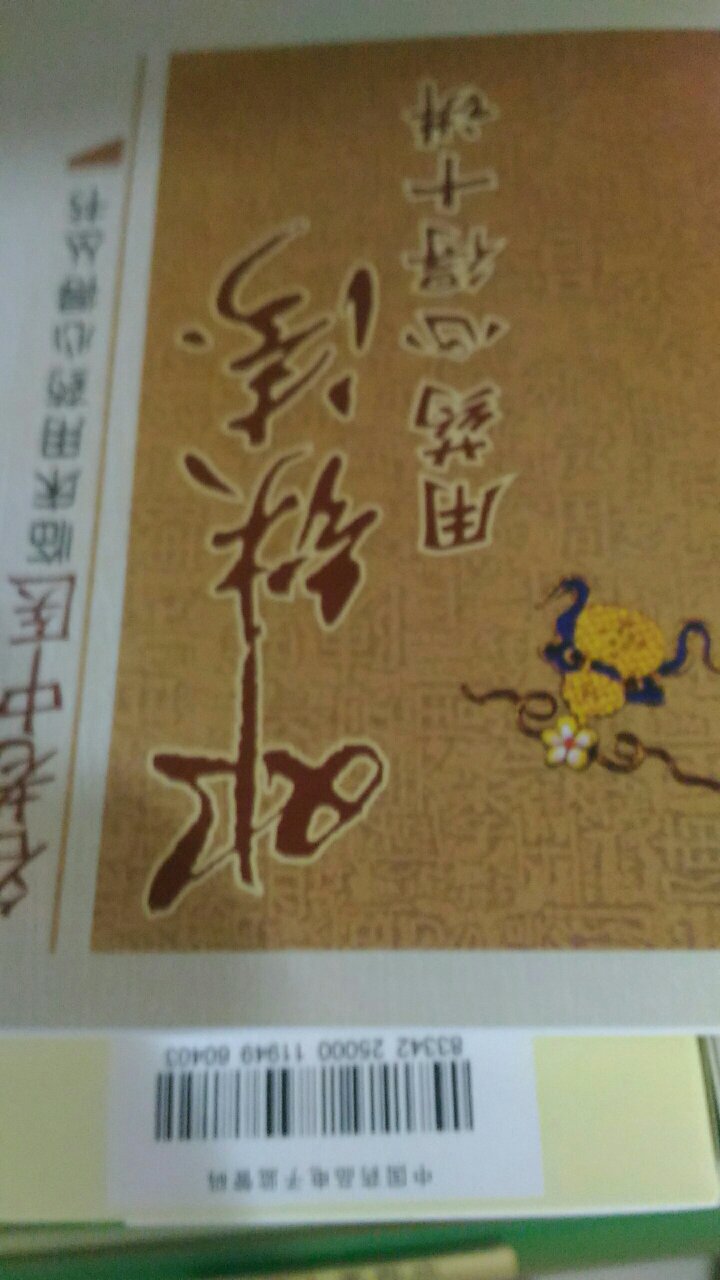 名老中医临床用药心得丛书
用药心得十讲
中国药品电子监管码
83342 25000 11949 60403